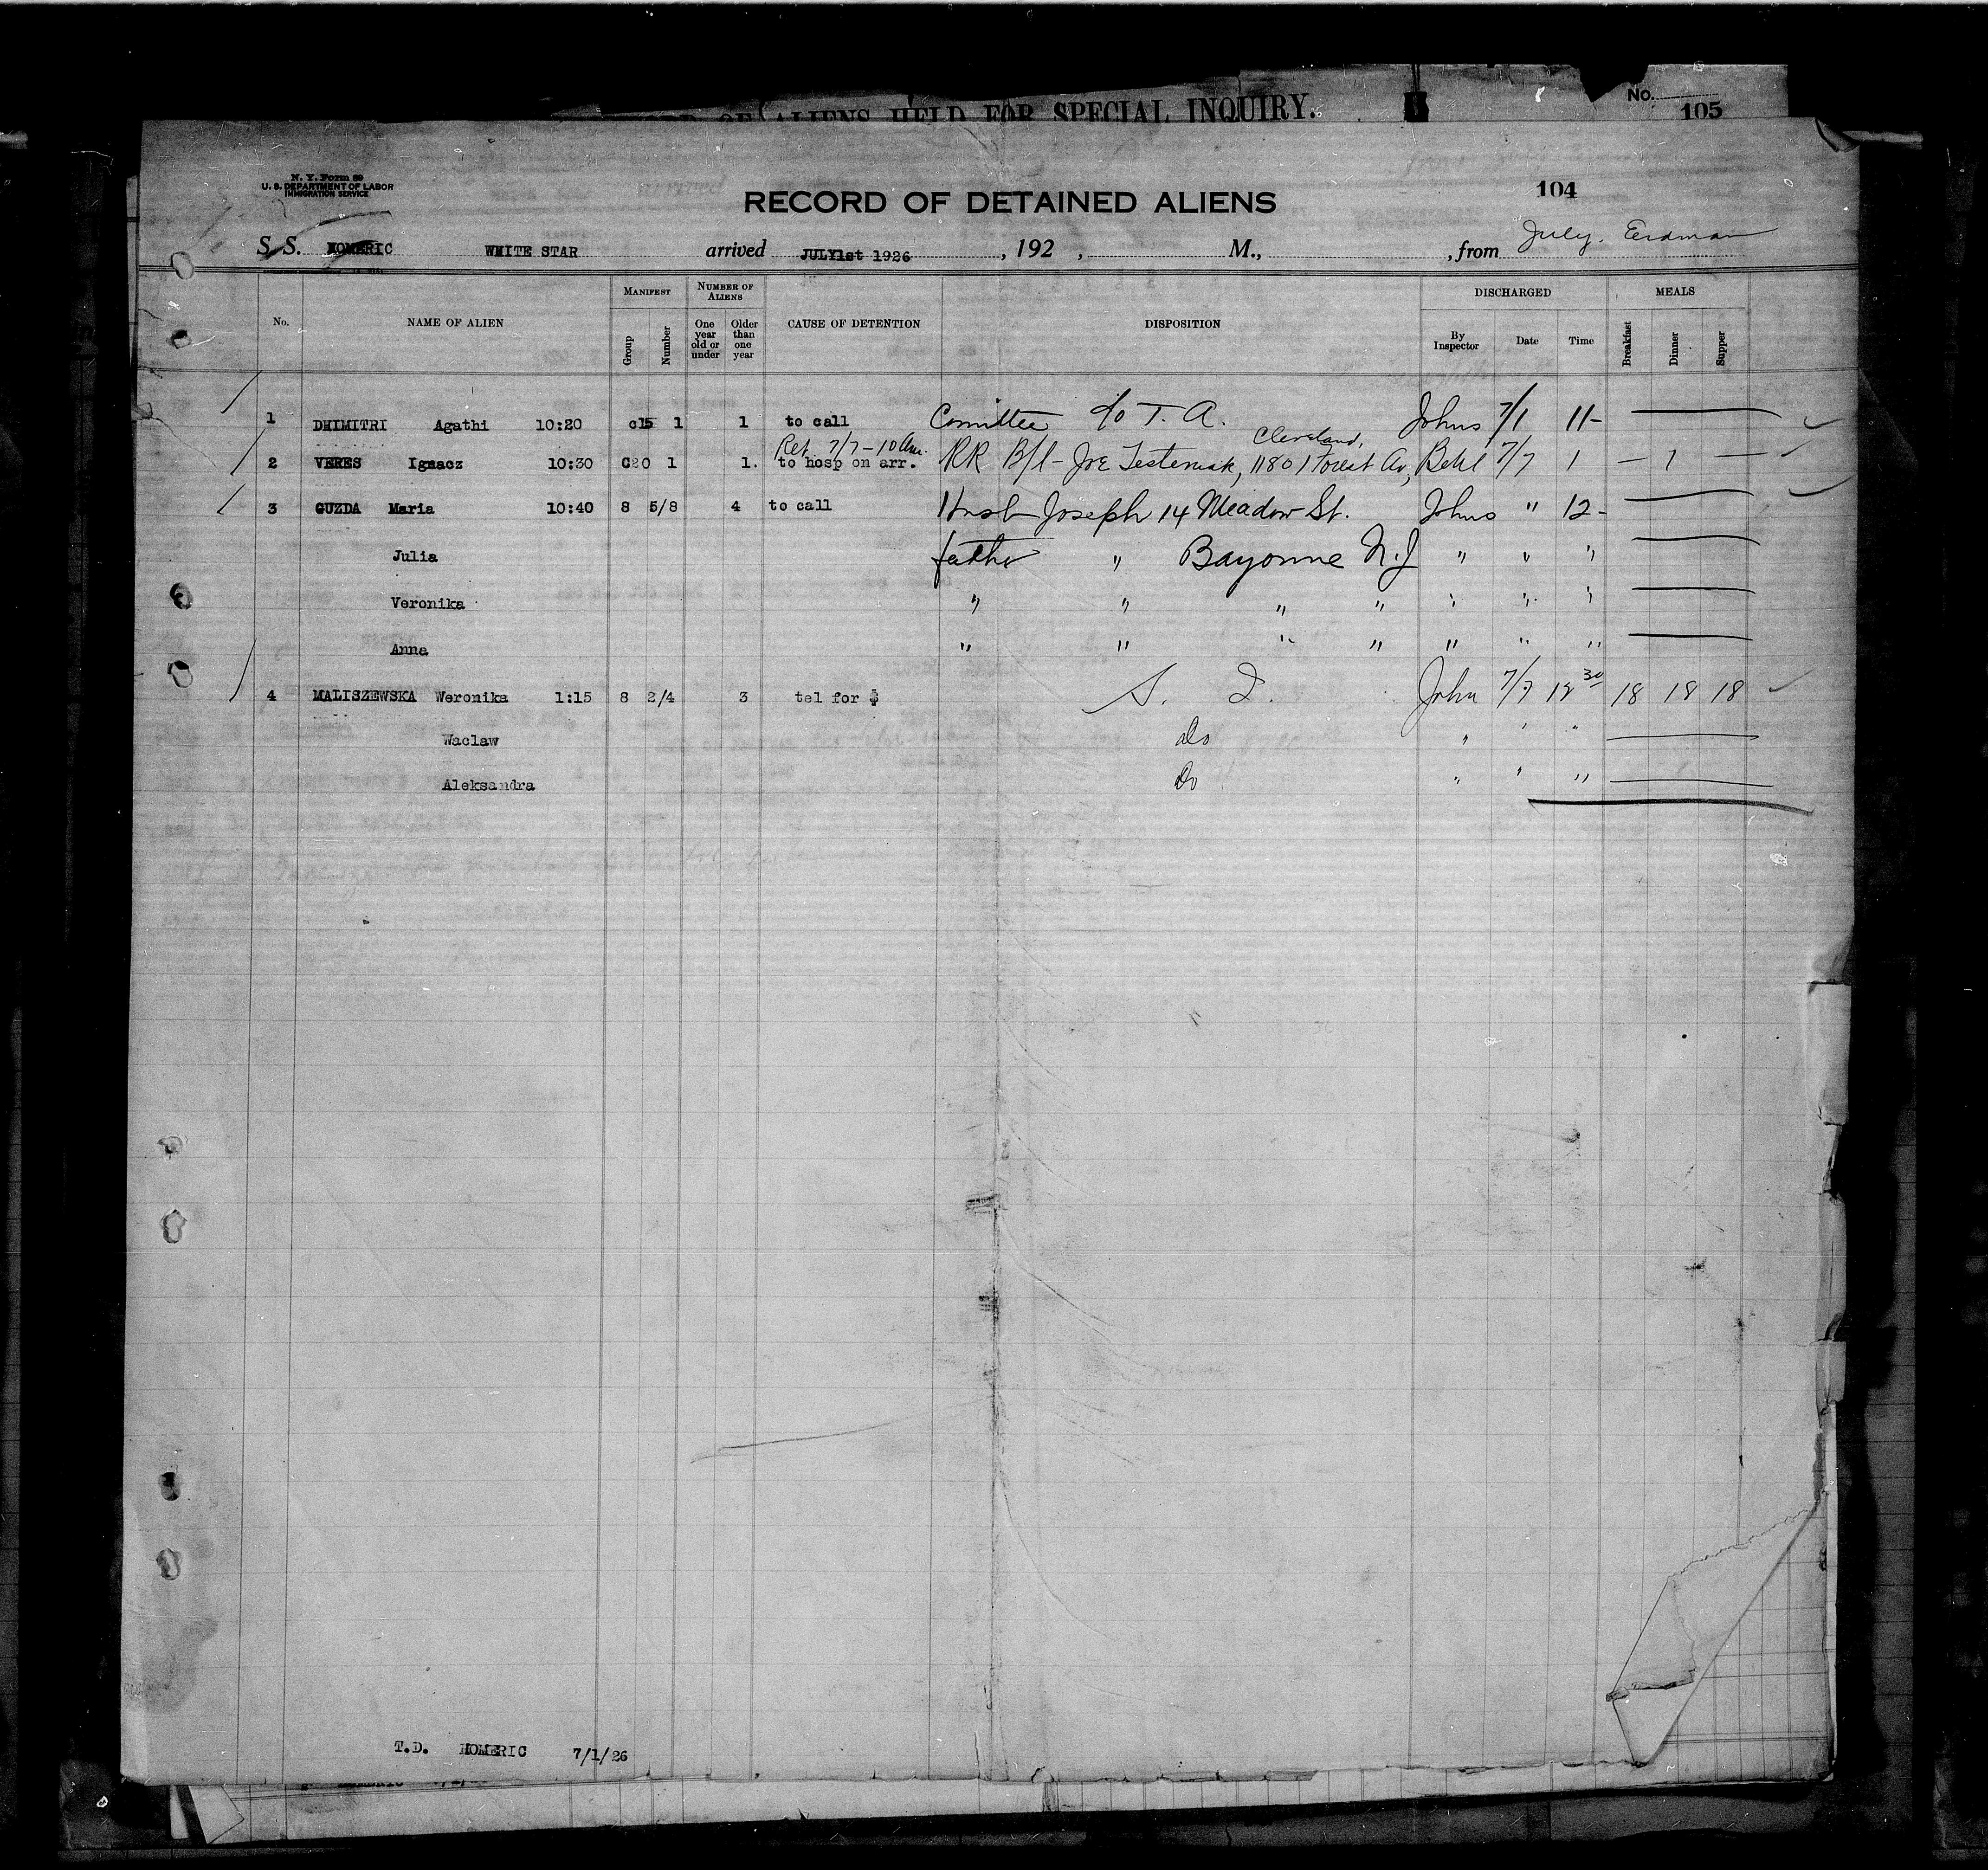 RECORD OF ALIENS HELD FOR SPECIAL INQUIRY.
No. 105
N. Y. Form 89
U. S. DEPARTMENT OF LABOR
IMMIGRATION SERVICE
RECORD OF DETAINED ALIENS 104
S. S. HOMERIC WHITE STAR arrived JULY 1st 1926, 192 , M., , from July. Erdman
No. NAME OF ALIEN MANIFEST Group Number NUMBER OF ALIENS One year old or under Older than one year CAUSE OF DETENTION DISPOSITION DISCHARGED By Inspector Date Time MEALS Breakfast Dinner Supper
1 DHIMITRI Agathi 10:20 c15 1 1 to call Comittee c/o T. A. Johns 7/1 11-
Ret. 7/7 - 10 Am. Cleveland,
2 VERES Ignacz 10:30 C20 1 1. to hosp on arr. RR B/l - Joe Testernik, 11801 Forest Av, Behl 7/7 1 — 1 —
3 GUZDA Maria 10:40 8 5/8 4 to call Husb Joseph 14 Meadow St. Johns " 12-
Julia father " Bayonne N.J " " "
Veronika " " " " " " "
Anna " " " " " " "
4 MALISZEWSKA Weronika 1:15 8 2/4 3 tel for $ S. I. John 7/7 12 30 18 18 18
Waclaw do " " "
Aleksandra Do " " "
T.D. HOMERIC 7/1/26